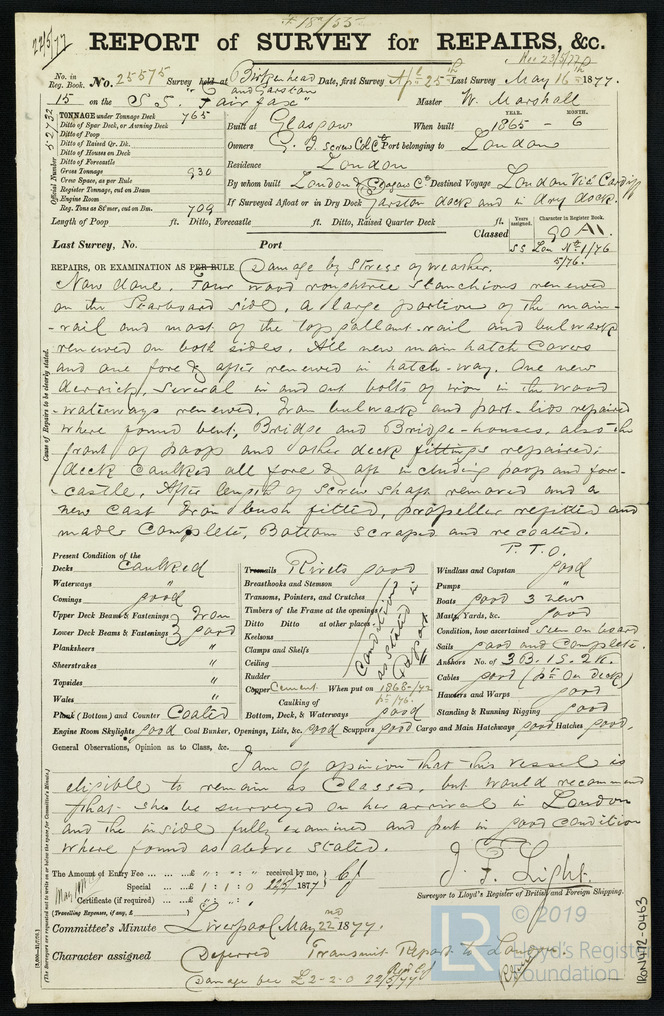 22/5/77
REPORT of SURVEY for REPAIRS, &c.
No. in Reg. Book. No. 25575 Survey held at Birkenhead and Garston Date, first Survey Apl 25th Last Survey May 16th 1877.
15 on the S.S. "Fairfax" Master W. Marshall
Official Number 52732
TONNAGE under Tonnage Deck 765
Ditto of Spar Deck, or Awning Deck
Ditto of Poop
Ditto of Raised Qr. Dk.
Ditto of Houses on Deck
Ditto of Forecastle
Gross Tonnage 930
Crew Space, as per Rule
Register Tonnage, cut on Beam
Engine Room
Reg. Tons as St'mer, cut on Bm. 709
Built at Glasgow When built YEAR. 1865 - MONTH. 6
Owners G. I. Screw Col Co Port belonging to London
Residence London
By whom built London & Glasgow Co Destined Voyage London Via Cardiff
If Surveyed Afloat or in Dry Dock Garston dock and in dry dock.
Length of Poop ft. Ditto, Forecastle ft. Ditto, Raised Quarter Deck ft.
Classed Years assigned. Character in Register Book. 90 A1.
SS Lon No 1/76
5/76.
Last Survey, No. Port
REPAIRS, OR EXAMINATION AS PER RULE Damage by Stress of weather.
Cause of Repairs to be clearly stated.
Now done. Four wood roughtree stanchions renewed
on the Starboard side, a large portion of the main-
-rail and most of the top gallant-rail and bulwark
renewed on both sides. All new main hatch Covers
and one fore & after renewed in hatch-way. One new
derrick, Several in and out bolts of iron in the wood
waterways renewed. Iron bulwark and port-lids repaired
where found bent; Bridge and Bridge-houses, also the
front of poop and other deck fittings repaired;
deck Caulked all fore & aft including poop and fore-
-castle. After length of Screw shaft removed and a
new cast Iron bush fitted, propeller refitted and
made Complete, Bottom Scraped and recoated.
P.T.O.
Present Condition of the
Decks Caulked
Waterways "
Comings good
Upper Deck Beams & Fastenings } Iron
Lower Deck Beams & Fastenings } good
Planksheers "
Sheerstrakes "
Topsides "
Wales "
Plank (Bottom) and Counter Coated
Treenails Rivets good
Breasthooks and Stemson
Transoms, Pointers, and Crutches
Timbers of the Frame at the openings
Ditto Ditto at other places
Keelsons
Clamps and Shelfs
Ceiling
Rudder "
Condition as stated in Report
Copper Cement When put on 1868-/72
Caulking of pt /76.
Bottom, Deck, & Waterways good
Windlass and Capstan good
Pumps "
Boats good 3 new
Masts, Yards, &c. good
Condition, how ascertained seen on board
Sails good and Complete.
Anchors No. of 3 B. 1 S. 2 K.
Cables good (pt On deck)
Hawsers and Warps good
Standing & Running Rigging good
Engine Room Skylights good Coal Bunker, Openings, Lids, &c. good Scuppers good Cargo and Main Hatchways good Hatches good.
General Observations, Opinion as to Class, &c.
I am of opinion that this vessel is
eligible to remain as Classed, but would recommend
that she be surveyed on her arrival in London
and the inside fully examined and put in good condition
where found as above stated.
The Amount of Entry Fee ... ...£ " : " : " received by me,
Special ... ...£ 1 : 1 : 0 22/5 1877
Certificate (if required) ...£ " : " : "
(Travelling Expenses, if any, £ )
J. F. Light.
Surveyor to Lloyd's Register of British and Foreign Shipping.
Committee's Minute Liverpool May 22nd 1877.
Character assigned Deferred Transmit Report to London
Damage fee £2-2-0 22/5/77
(The Surveyors are requested not to write on or below the space for Committee's Minute.)
© 2019
LR Lloyd's Register Foundation
IRON472-0463